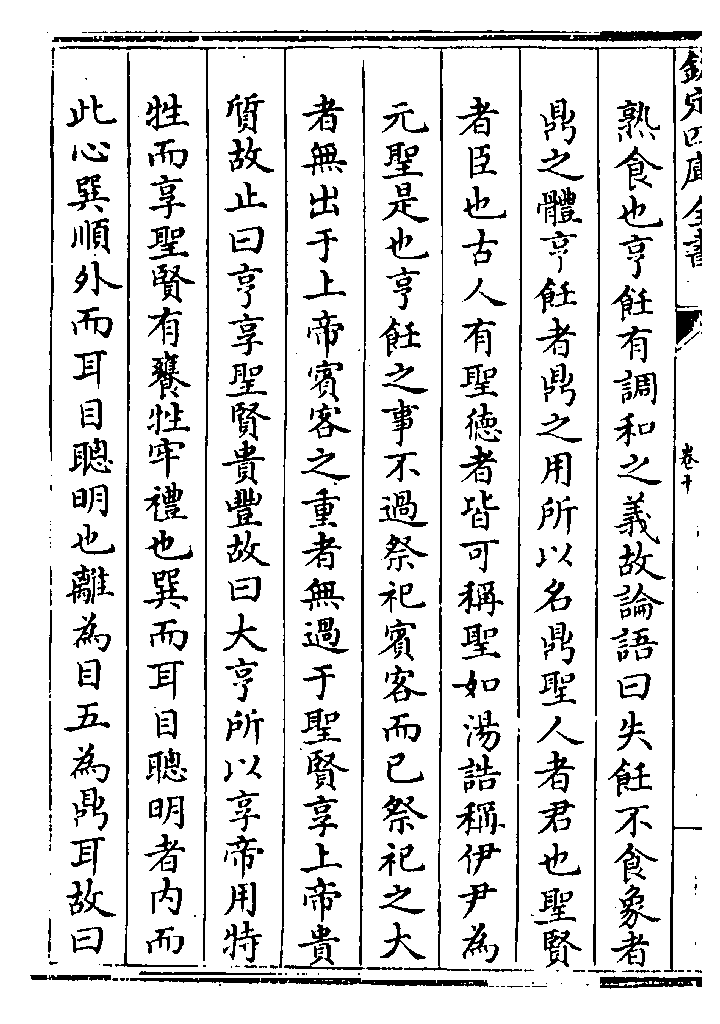 欽定四庫全書
卷十
熟食也亨飪有調和之義故論語曰失飪不食象者
鼎之體亨飪者鼎之用所以名鼎聖人者君也聖賢
者臣也古人有聖德者皆可稱聖如湯誥稱伊尹為
元聖是也亨飪之事不過祭祀賓客而已祭祀之大
者無出于上帝賓客之重者無過于聖賢享上帝貴
質故止曰亨享聖賢貴豐故曰大亨所以享帝用特
牲而享聖賢有饔牲牢禮也巽而耳目聰明者内而
此心巽順外而耳目聰明也離為目五為鼎耳故曰